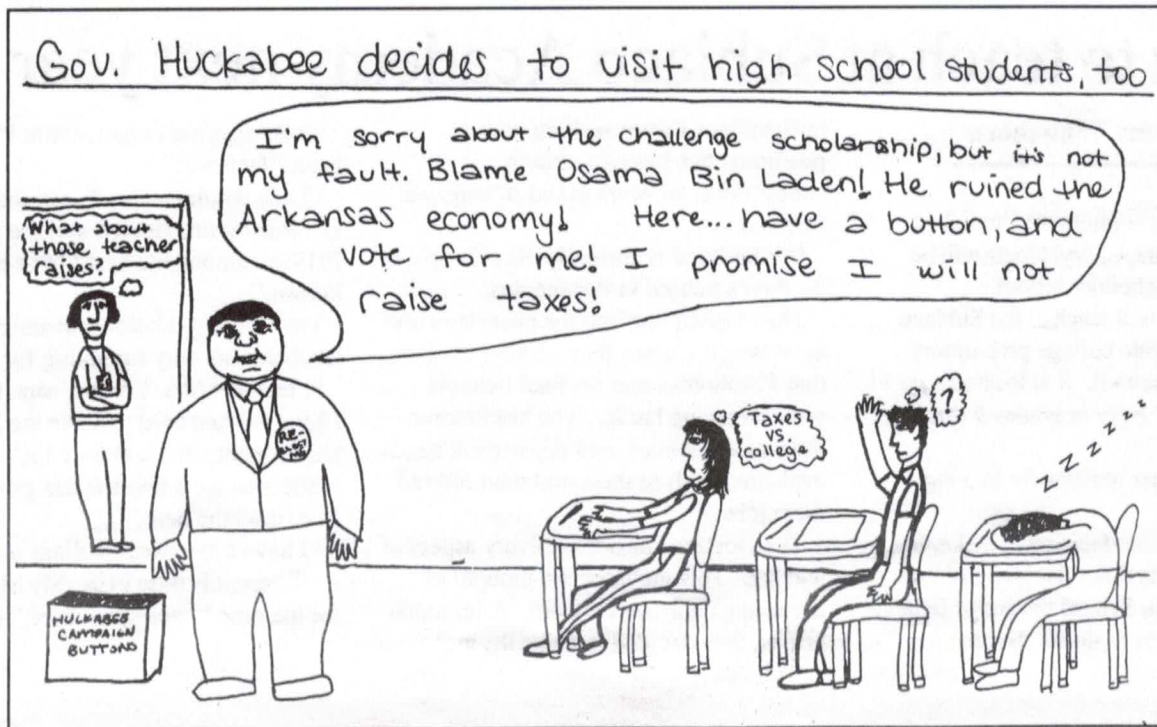 Gov. Huckabee decides to visit high school students, too
I'm sorry about the challenge scholarship, but its not
my fault. Blame Osama Bin Laden! He ruined the
Arkansas economy! Here... have a button, and
vote for me! I promise I will not
raise taxes!
What about
those teacher
raises?
Taxes
vs
college
?
z z z z z z
HUCKABEE
CAMPAIGN
BUTTONS